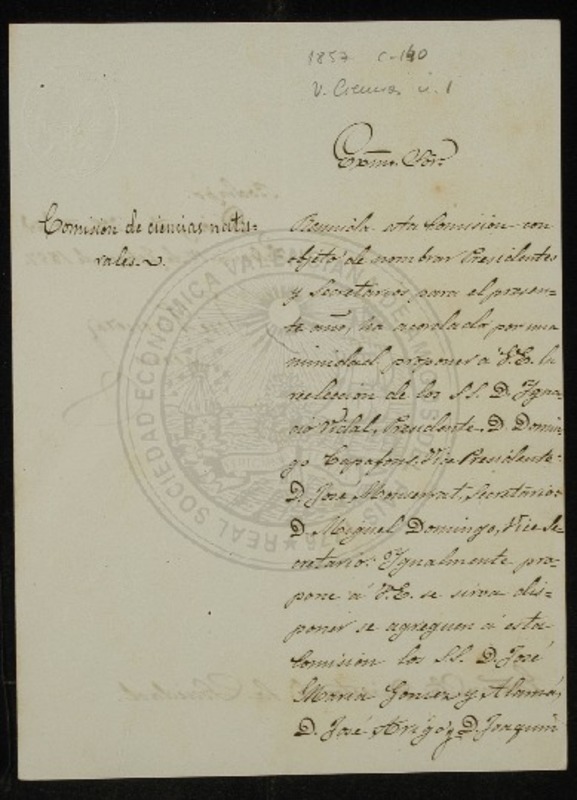 1857 C-140
V. Ciencias n. 1
Exmo. Sor.
Comision de ciencias natu-
rales.
Reunida esta Comision con
objeto de nombrar Presidentes
y Secretarios para el presen-
te año, ha acordado por una-
nimidad proponer á V.E. la
reeleccion de los S.S. D. Igna-
cio Vidal, Presidente, D. Domin-
go Capafons, Vice Presidente:
D. José Monserrat, Secretario:
D. Miguel Domingo, Vice Se-
cretario: Igualmente pro-
pone á V.E. se sirva dis-
poner se agreguen á esta
Comision los S.S. D. José
Maria Gomez y Alamá,
D. José Arigó, D. Joaquin
REAL SOCIEDAD ECONÓMICA VALENCIANA DE AMIGOS DEL PAÍS